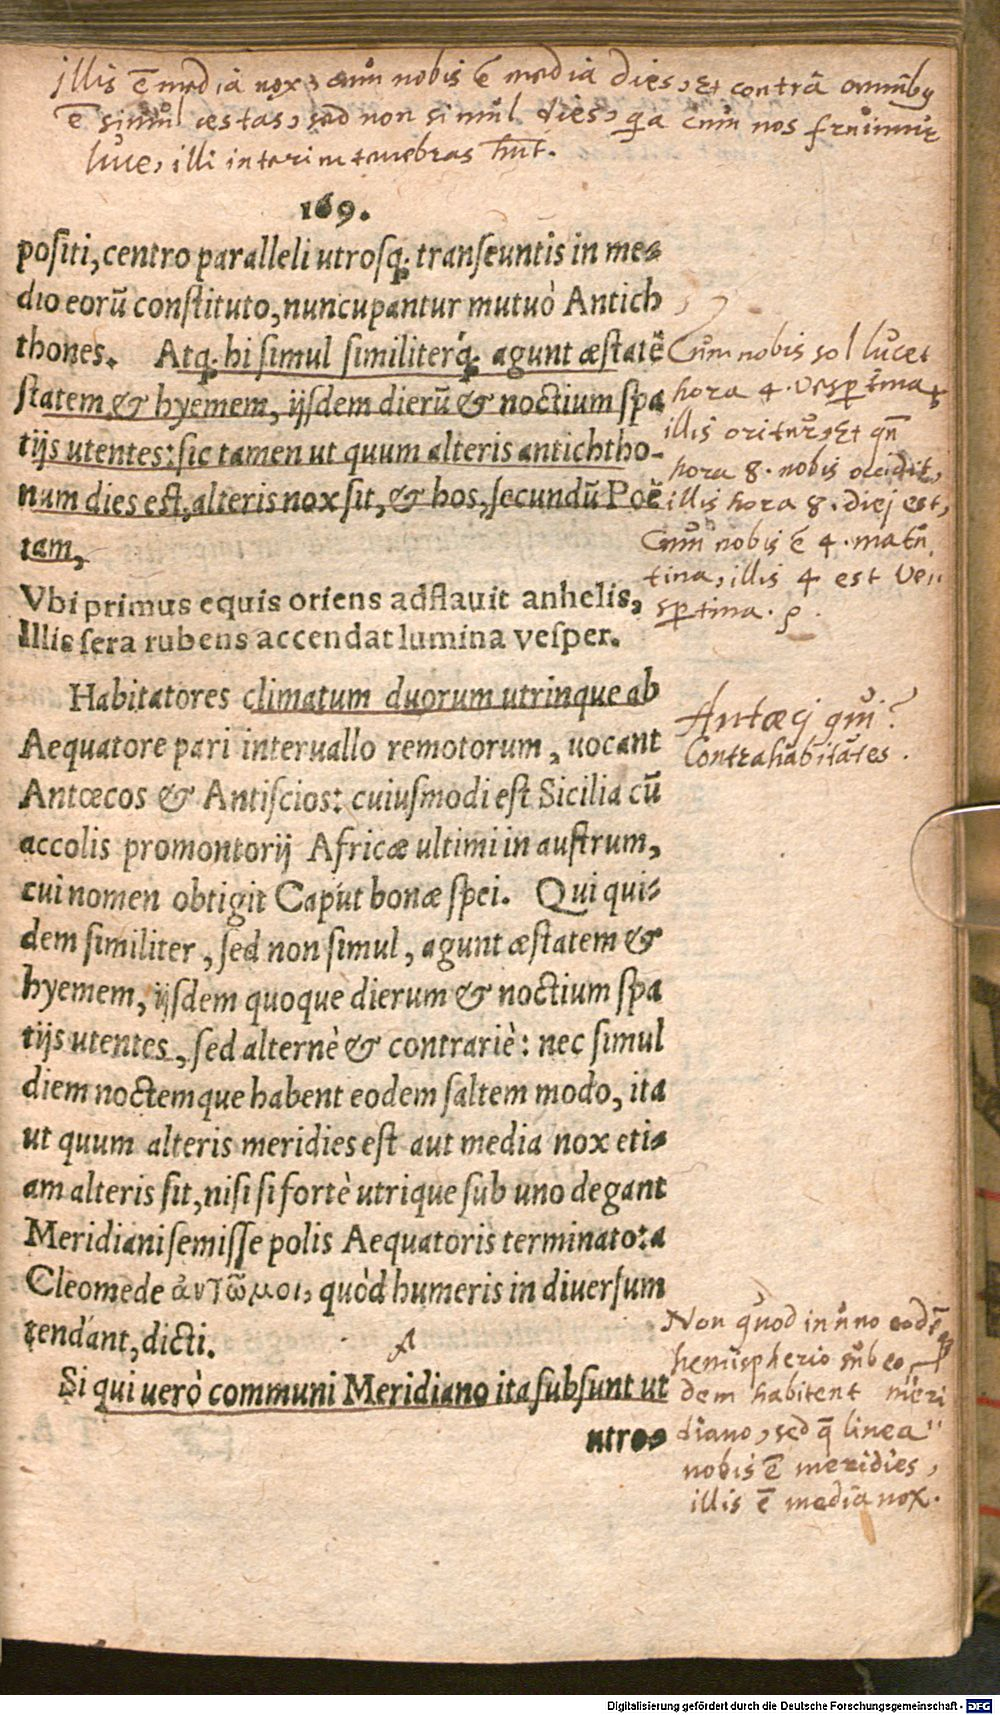 illis ē media nox, cum nobis ē media dies, Et contrà omnibus
ē simŭl æstas, sed non simŭl dies, qia cŭm nos frŭimŭr
lŭce, illi interim tenebras hñt.
169.
positi, centro paralleli utrosq; transeuntis in me-
dio eorū constituto, nuncupantur mutuò Antich
thones. Atq; hi simul similiterq́; agunt æstatē
statem & hyemem, ijsdem dierū & noctium spa
tijs utentes: sic tamen ut quum alteris antichtho-
num dies est, alteris nox sit, & hos, secundū Poë
tam,
Vbi primus equis oriens adflauit anhelis,
Illis sera rubens accendat lumina vesper.
Cŭm nobis sol lŭcet
hora 4. vespertina
illis oritŭr, Et qn̄
hora 8. nobis occidit,
illis hora 8. diej est,
Cŭm nobis ē 4. matŭ
tina, illis 4 est Ve
spertina.
Habitatores climatum duorum utrinque ab
Aequatore pari interuallo remotorum, uocant
Antœcos & Antiscios: cuiusmodi est Sicilia cū
accolis promontorij Africæ ultimi in austrum,
cui nomen obtigit Caput bonæ spei. Qui qui-
dem similiter, sed non simul, agunt æstatem &
hyemem, ijsdem quoque dierum & noctium spa
tijs utentes, sed alternè & contrariè: nec simul
diem noctemque habent eodem saltem modo, ita
ut quum alteris meridies est aut media nox eti-
am alteris sit, nisi si fortè utrique sub uno degant
Meridiani semisse polis Aequatoris terminato: a
Cleomede ἀντῶμοι, quòd humeris in diuersum
tendant, dicti.
Antœcj qŭi?
Contrahabitātes.
A
Si qui uerò communi Meridiano ita subsunt ut
utros-
Non qŭod in ŭno eodē
hemispherio sŭb eo
dem habitent meri
diano, sed linea
nobis ē meridies,
illis ē media nox.
Digitalisierung gefördert durch die Deutsche Forschungsgemeinschaft - DFG